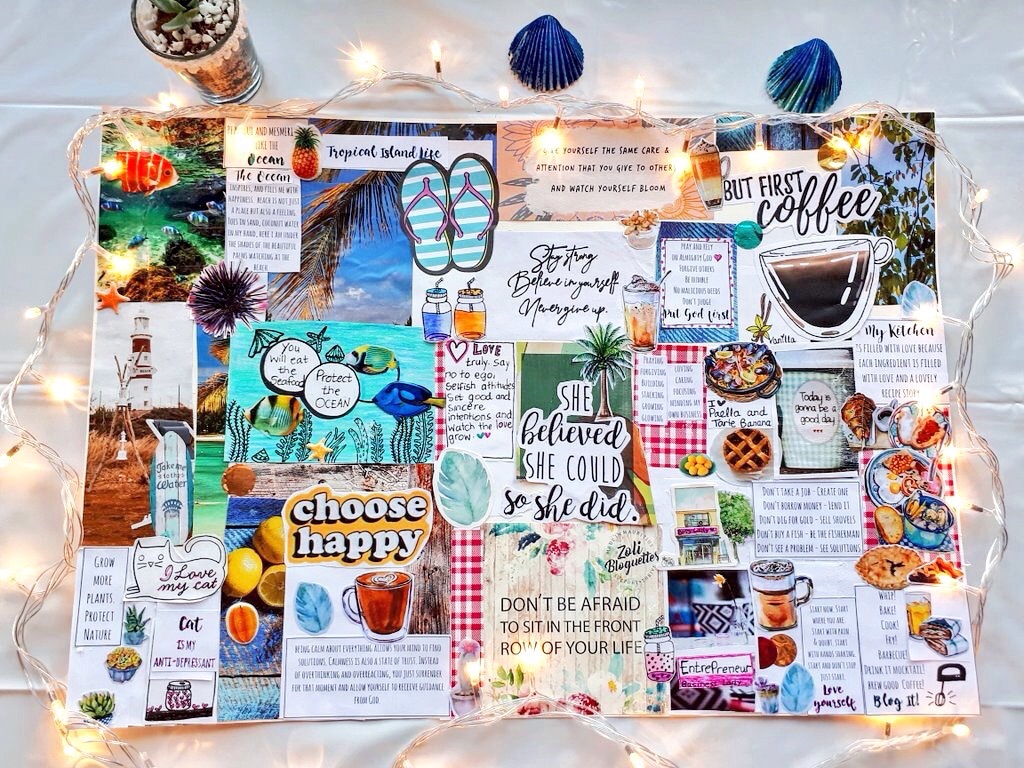 AND MESMERI
LIKE THE
Ocean
The Ocean
INSPIRES, AND FILLS ME WITH
HAPPINESS. BEACH IS NOT JUST
A PLACE BUT ALSO A FEELING.
TOES IN SAND, COCONUT WATER
IN MY HAND, HERE I AM UNDER
THE SHADES OF THE BEAUTIFUL
PALMS WATCHING AT THE
BEACH
Tropical Island Life
GIVE YOURSELF THE SAME CARE &
ATTENTION THAT YOU GIVE TO OTHERS
AND WATCH YOURSELF BLOOM
BUT FIRST
coffee
Stay strong
Believe in yourself
Never give up.
PRAY AND RELY
ON ALMIGHTY GOD
FORGIVE OTHERS
BE HUMBLE
NO MALICIOUS DEEDS
DON'T JUDGE
Put God first
Vanilla
My Kitchen
IS FILLED WITH LOVE BECAUSE
EACH INGREDIENT IS FILLED
WITH LOVE AND A LOVELY
RECIPE STORY
You
will eat
the
Seafood
Protect
the
OCEAN
LOVE
truly, say
no to ego,
Selfish attitudes
Set good and
sincere
intentions and
watch the
love
grow.
SHE
believed
SHE COULD
so she did.
PRAYING
FORGIVING
BUILDING
STACKING
GLOWING
GROWING
LOVING
CARING
FOCUSING
MINDING MY
OWN BUSINESS
I
Paella and
Tarte Banana
Today is
gonna be a
good day
Take me
to the
Water
choose
happy
Zoli
Bloguette's
DON'T TAKE A JOB - CREATE ONE
DON'T BORROW MONEY - LEND IT
DON'T DIG FOR GOLD - SELL SHOVELS
DON'T BUY A FISH - BE THE FISHERMAN
DON'T SEE A PROBLEM - SEE SOLUTIONS
GROW
MORE
PLANTS,
PROTECT
NATURE
I Love
my cat
Cat
IS MY
ANTI-DEPRESSANT
BEING CALM ABOUT EVERYTHING ALLOWS YOUR MIND TO FIND
SOLUTIONS. CALMNESS IS ALSO A STATE OF TRUST. INSTEAD
OF OVERTHINKING AND OVERREACTING, YOU JUST SURRENDER
FOR THAT MOMENT AND ALLOW YOURSELF TO RECEIVE GUIDANCE
FROM GOD.
DON'T BE AFRAID
TO SIT IN THE FRONT
ROW OF YOUR LIFE
EntrePreneur
START NOW. START
WHERE YOU ARE.
START WITH PAIN
& DOUBT. START
WITH HANDS SHAKING
START AND DON'T STOP.
JUST START.
Love
yourself
WHIP!
BAKE!
COOK!
FRY!
BARBECUE!
DRINK IT MOCKTAIL!
BREW GOOD COFFEE!
Blog It!